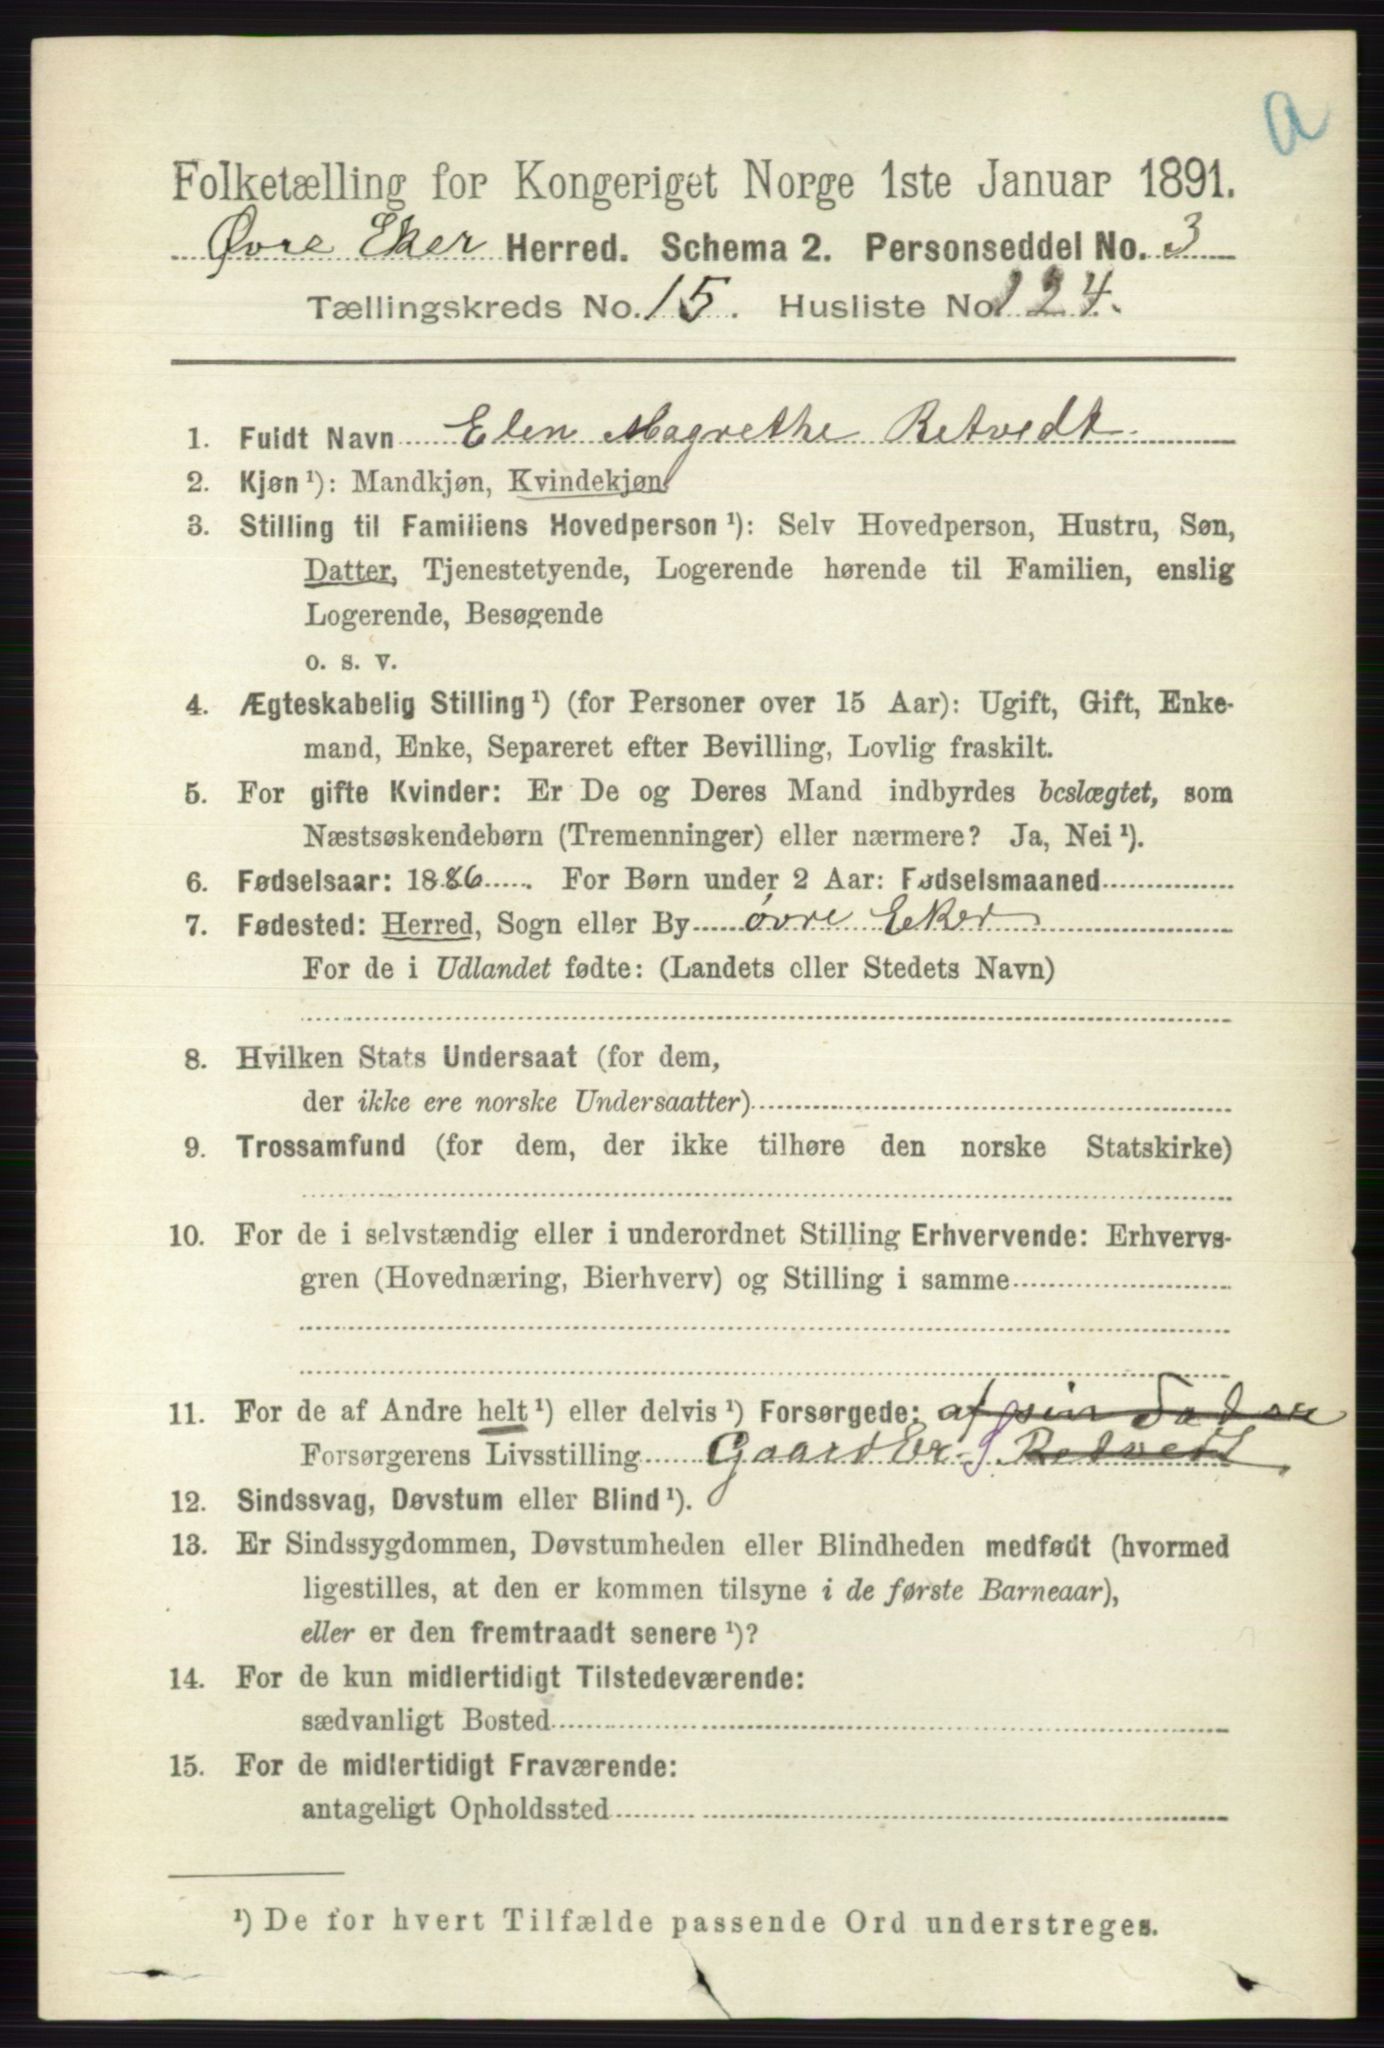 a
Folketælling for Kongeriget Norge 1ste Januar 1891.
Øvre Eker Herred. Schema 2. Personseddel No. 3
Tællingskreds No. 15. Husliste No. 124.
1. Fuldt Navn Elen Magrethe Retvedt
2. Kjøn ¹): Mandkjøn, Kvindekjøn
3. Stilling til Familiens Hovedperson ¹): Selv Hovedperson, Hustru, Søn,
Datter, Tjenestetyende, Logerende hørende til Familien, enslig
Logerende, Besøgende
o. s. v.
4. Ægteskabelig Stilling ¹) (for Personer over 15 Aar): Ugift, Gift, Enke-
mand, Enke, Separeret efter Bevilling, Lovlig fraskilt.
5. For gifte Kvinder: Er De og Deres Mand indbyrdes beslægtet, som
Næstsøskendebørn (Tremenninger) eller nærmere? Ja, Nei ¹).
6. Fødselsaar: 1886. For Børn under 2 Aar: Fødselsmaaned
7. Fødested: Herred, Sogn eller By øvre Eker
For de i Udlandet fødte: (Landets eller Stedets Navn)
8. Hvilken Stats Undersaat (for dem,
der ikke ere norske Undersaatter)
9. Trossamfund (for dem, der ikke tilhøre den norske Statskirke)
10. For de i selvstændig eller i underordnet Stilling Erhvervende: Erhvervs-
gren (Hovednæring, Bierhverv) og Stilling i samme
11. For de af Andre helt ¹) eller delvis ¹) Forsørgede: af sin
Forsørgerens Livsstilling Gaard Er. S Retvedt
12. Sindssvag, Døvstum eller Blind ¹).
13. Er Sindssygdommen, Døvstumheden eller Blindheden medfødt (hvormed
ligestilles, at den er kommen tilsyne i de første Barneaar),
eller er den fremtraadt senere ¹)?
14. For de kun midlertidigt Tilstedeværende:
sædvanligt Bosted
15. For de midlertidigt Fraværende:
antageligt Opholdssted
¹) De for hvert Tilfælde passende Ord understreges.